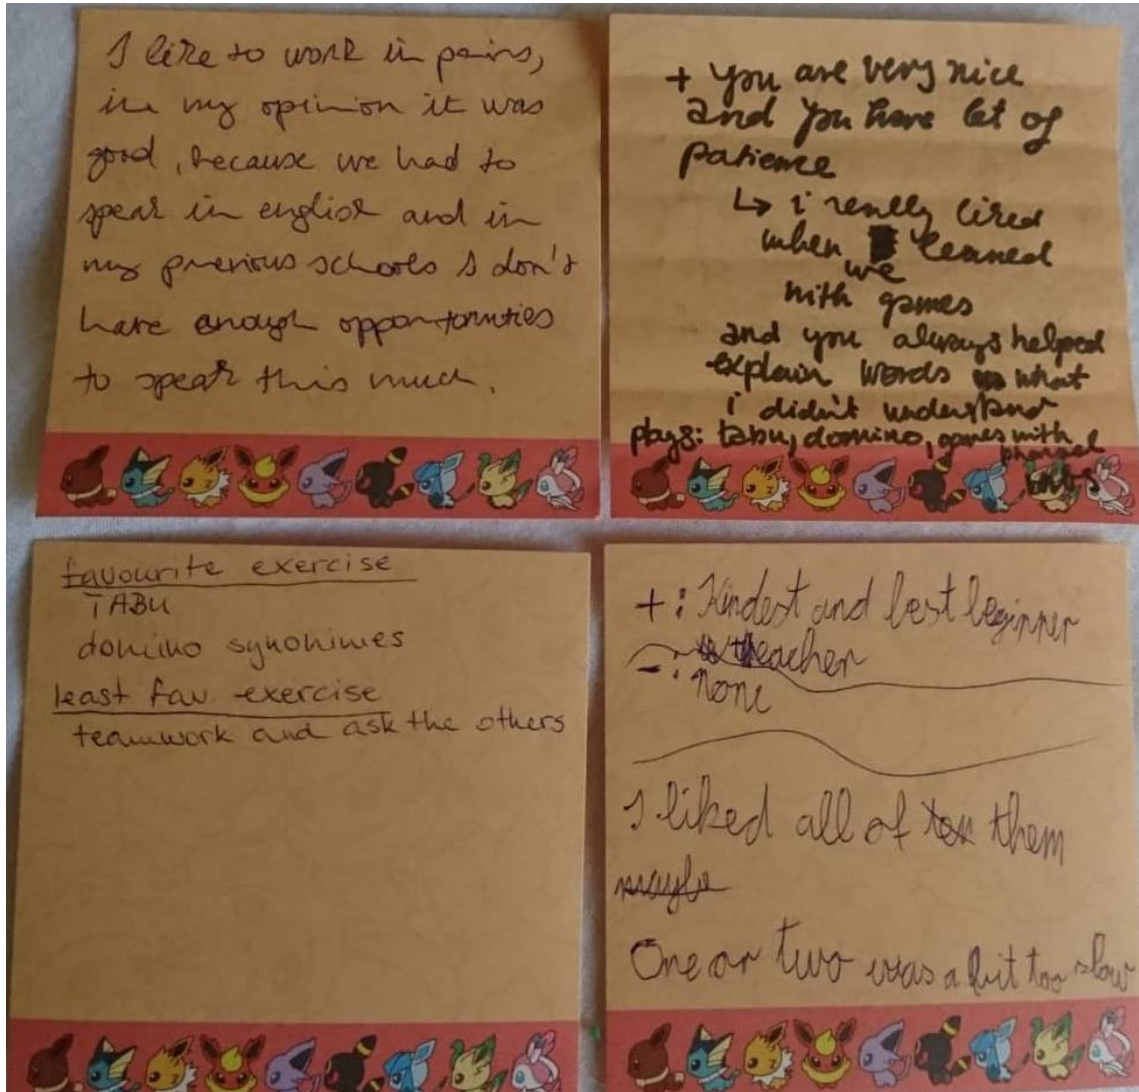 I like to work in pairs,
in my opinion it was
good, because we had to
speak in english and in
my previous schools I don't
have enough opportunities
to speak this much.
+ you are very nice
and you have lot of
patience
↳ i really liked
when we learned
with games
and you always helped
explain words what
i didn't understand
plays: tabu, domino, games with
phrasal
favourite exercise
TABU
domino synonimes
least fav. exercise
teamwork and ask the others
+: Kindest and best beginner
teacher
-: none
I liked all of them
maybe
One or two was a bit too slow